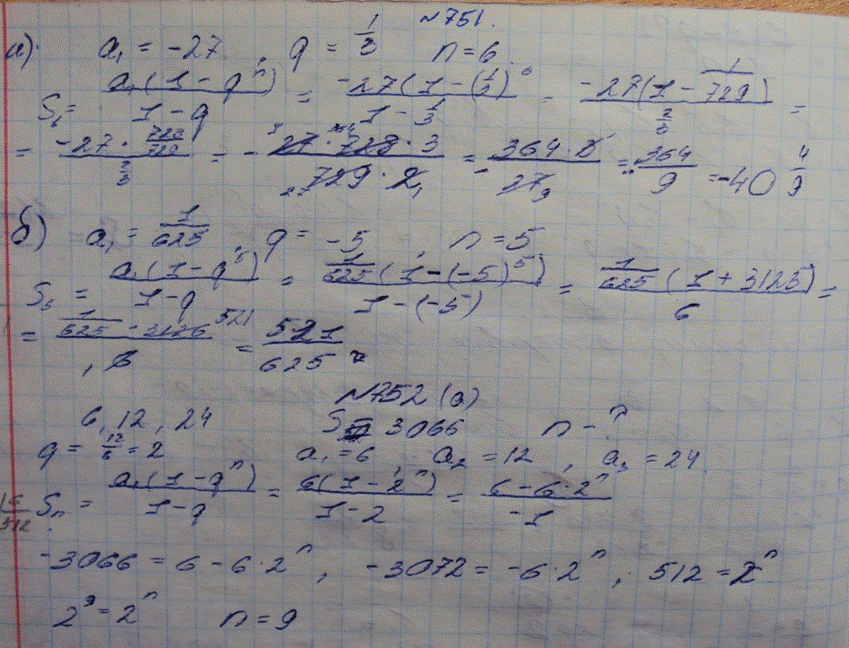 №751.
а). a₁ = -27, q = 1/3 n = 6.
S₆ = a₁(1 - qⁿ)/(1 - q) = -27(1 - (1/3)⁶)/(1 - 1/3) = -27(1 - 1/729)/(2/3) =
= (-27 · 728/729)/(2/3) = - (27 · 728 · 3)/(729 · 2) = - (364 · 2)/27 = - 364/9 = -40 4/9
б) a₁ = 1/625, q = -5, n = 5
S₅ = a₁(1 - q⁵)/(1 - q) = 1/625(1 - (-5)⁵)/(1 - (-5)) = 1/625(1 + 3125)/6 =
= (1/625 · 3126 521)/6 = 521/625
№752 (а)
6, 12, 24 S 3066 n - ?
q = 12/6 = 2 a₁ = 6 a₂ = 12, a₃ = 24
Sₙ = a₁(1 - qⁿ)/(1 - q) = 6(1 - 2ⁿ)/(1 - 2) = (6 - 6·2ⁿ)/-1
-3066 = 6 - 6·2ⁿ, -3072 = -6·2ⁿ; 512 = 2ⁿ
2⁹ = 2ⁿ n = 9